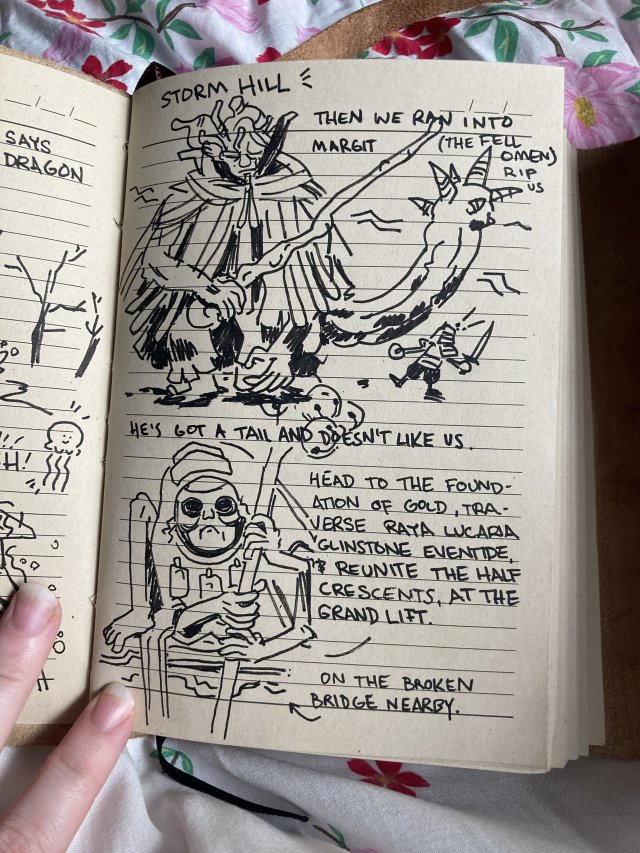 SAYS
DRAGON
H!
H
STORM HILL
THEN WE RAN INTO
MARGIT (THE FELL
OMEN)
RIP
US
HE'S GOT A TAIL AND DOESN'T LIKE US.
HEAD TO THE FOUND-
ATION OF GOLD, TRA-
VERSE RAYA LUCARIA
GLINSTONE EVENTIDE,
& REUNITE THE HALF
CRESCENTS, AT THE
GRAND LIFT.
ON THE BROKEN
BRIDGE NEARBY.